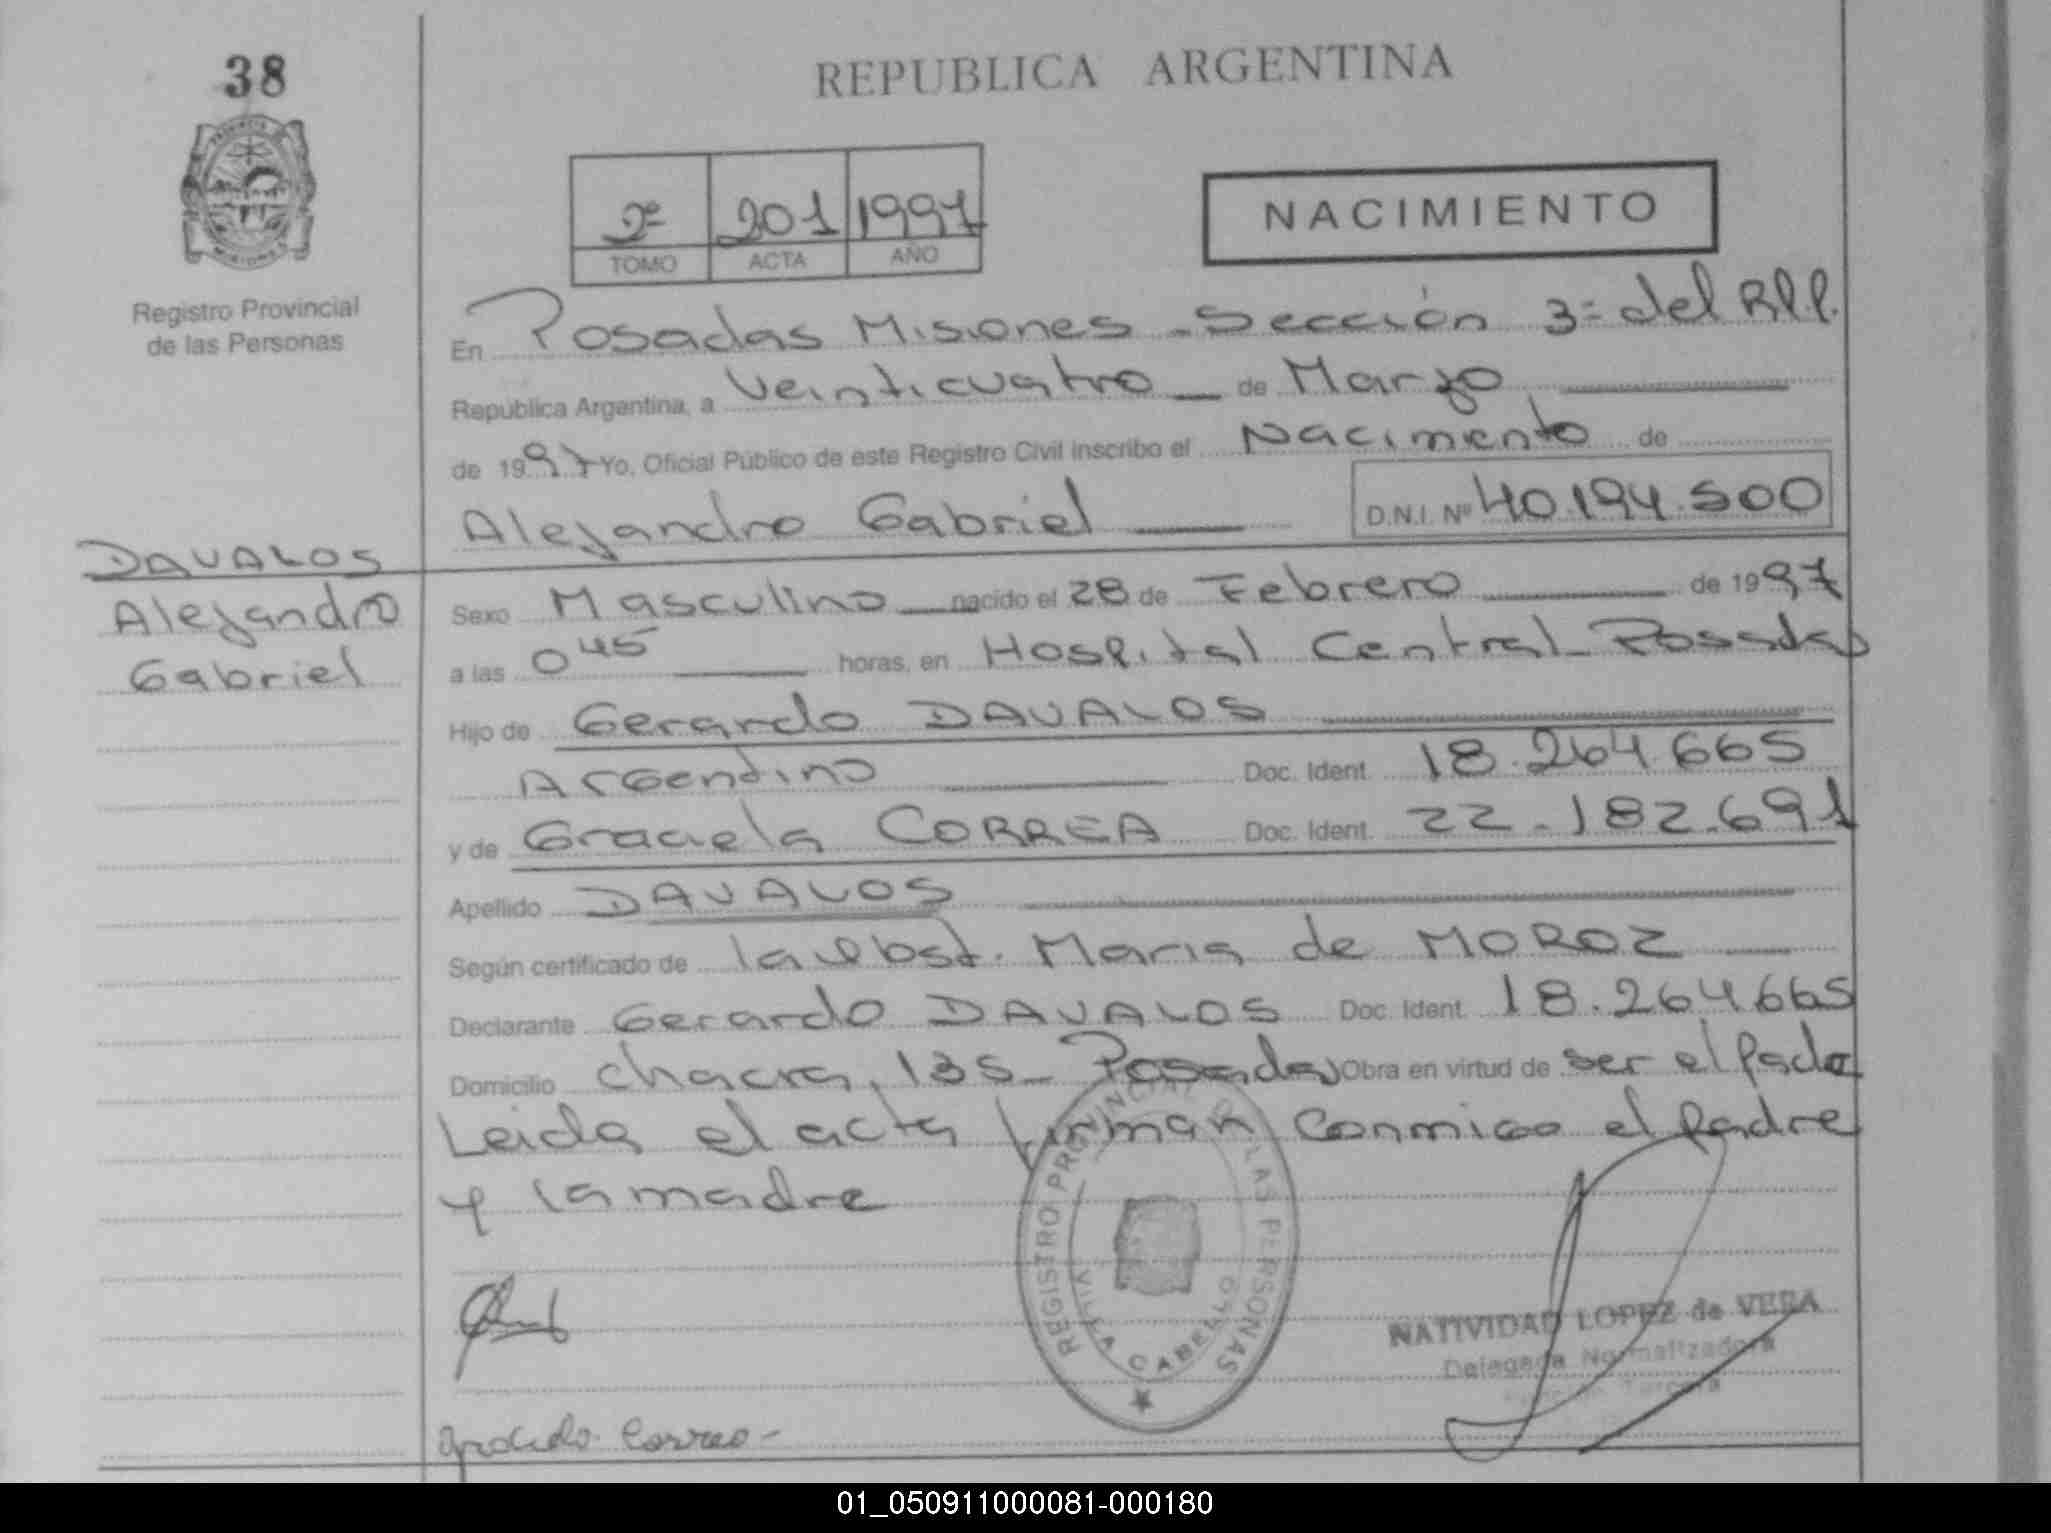 38
REPUBLICA ARGENTINA
2º 201 1997
TOMO ACTA AÑO
NACIMIENTO
Registro Provincial
de las Personas
En Posadas Misiones - Sección 3º del R.P.P.
República Argentina, a veinticuatro de Marzo
de 1997 Yo, Oficial Público de este Registro Civil inscribo el Nacimiento de
Alejandro Gabriel D.N.I. Nº 40.194.500
DAVALOS
Alejandro
Gabriel
Sexo Masculino nacido el 28 de Febrero de 1997
a las 0 45 horas, en Hospital Central - Posadas
Hijo de Gerardo DAVALOS
Argentino Doc. Ident. 18.264.665
y de Graciela CORREA Doc. Ident. 22.182.691
Apellido DAVALOS
Según certificado de la obst. Maria de MOROZ
Declarante Gerardo DAVALOS Doc. Ident. 18.264.665
Domicilio chacra, 135 - Posadas Obra en virtud de ser el padre
Leida el acta firman conmigo el padre
y la madre
REGISTRO PROVINCIAL DE LAS PERSONAS
VILLA CABELLO
NATIVIDAD LOPEZ de VERA
Delegada Normalizadora
Correa -
01_050911000081-000180